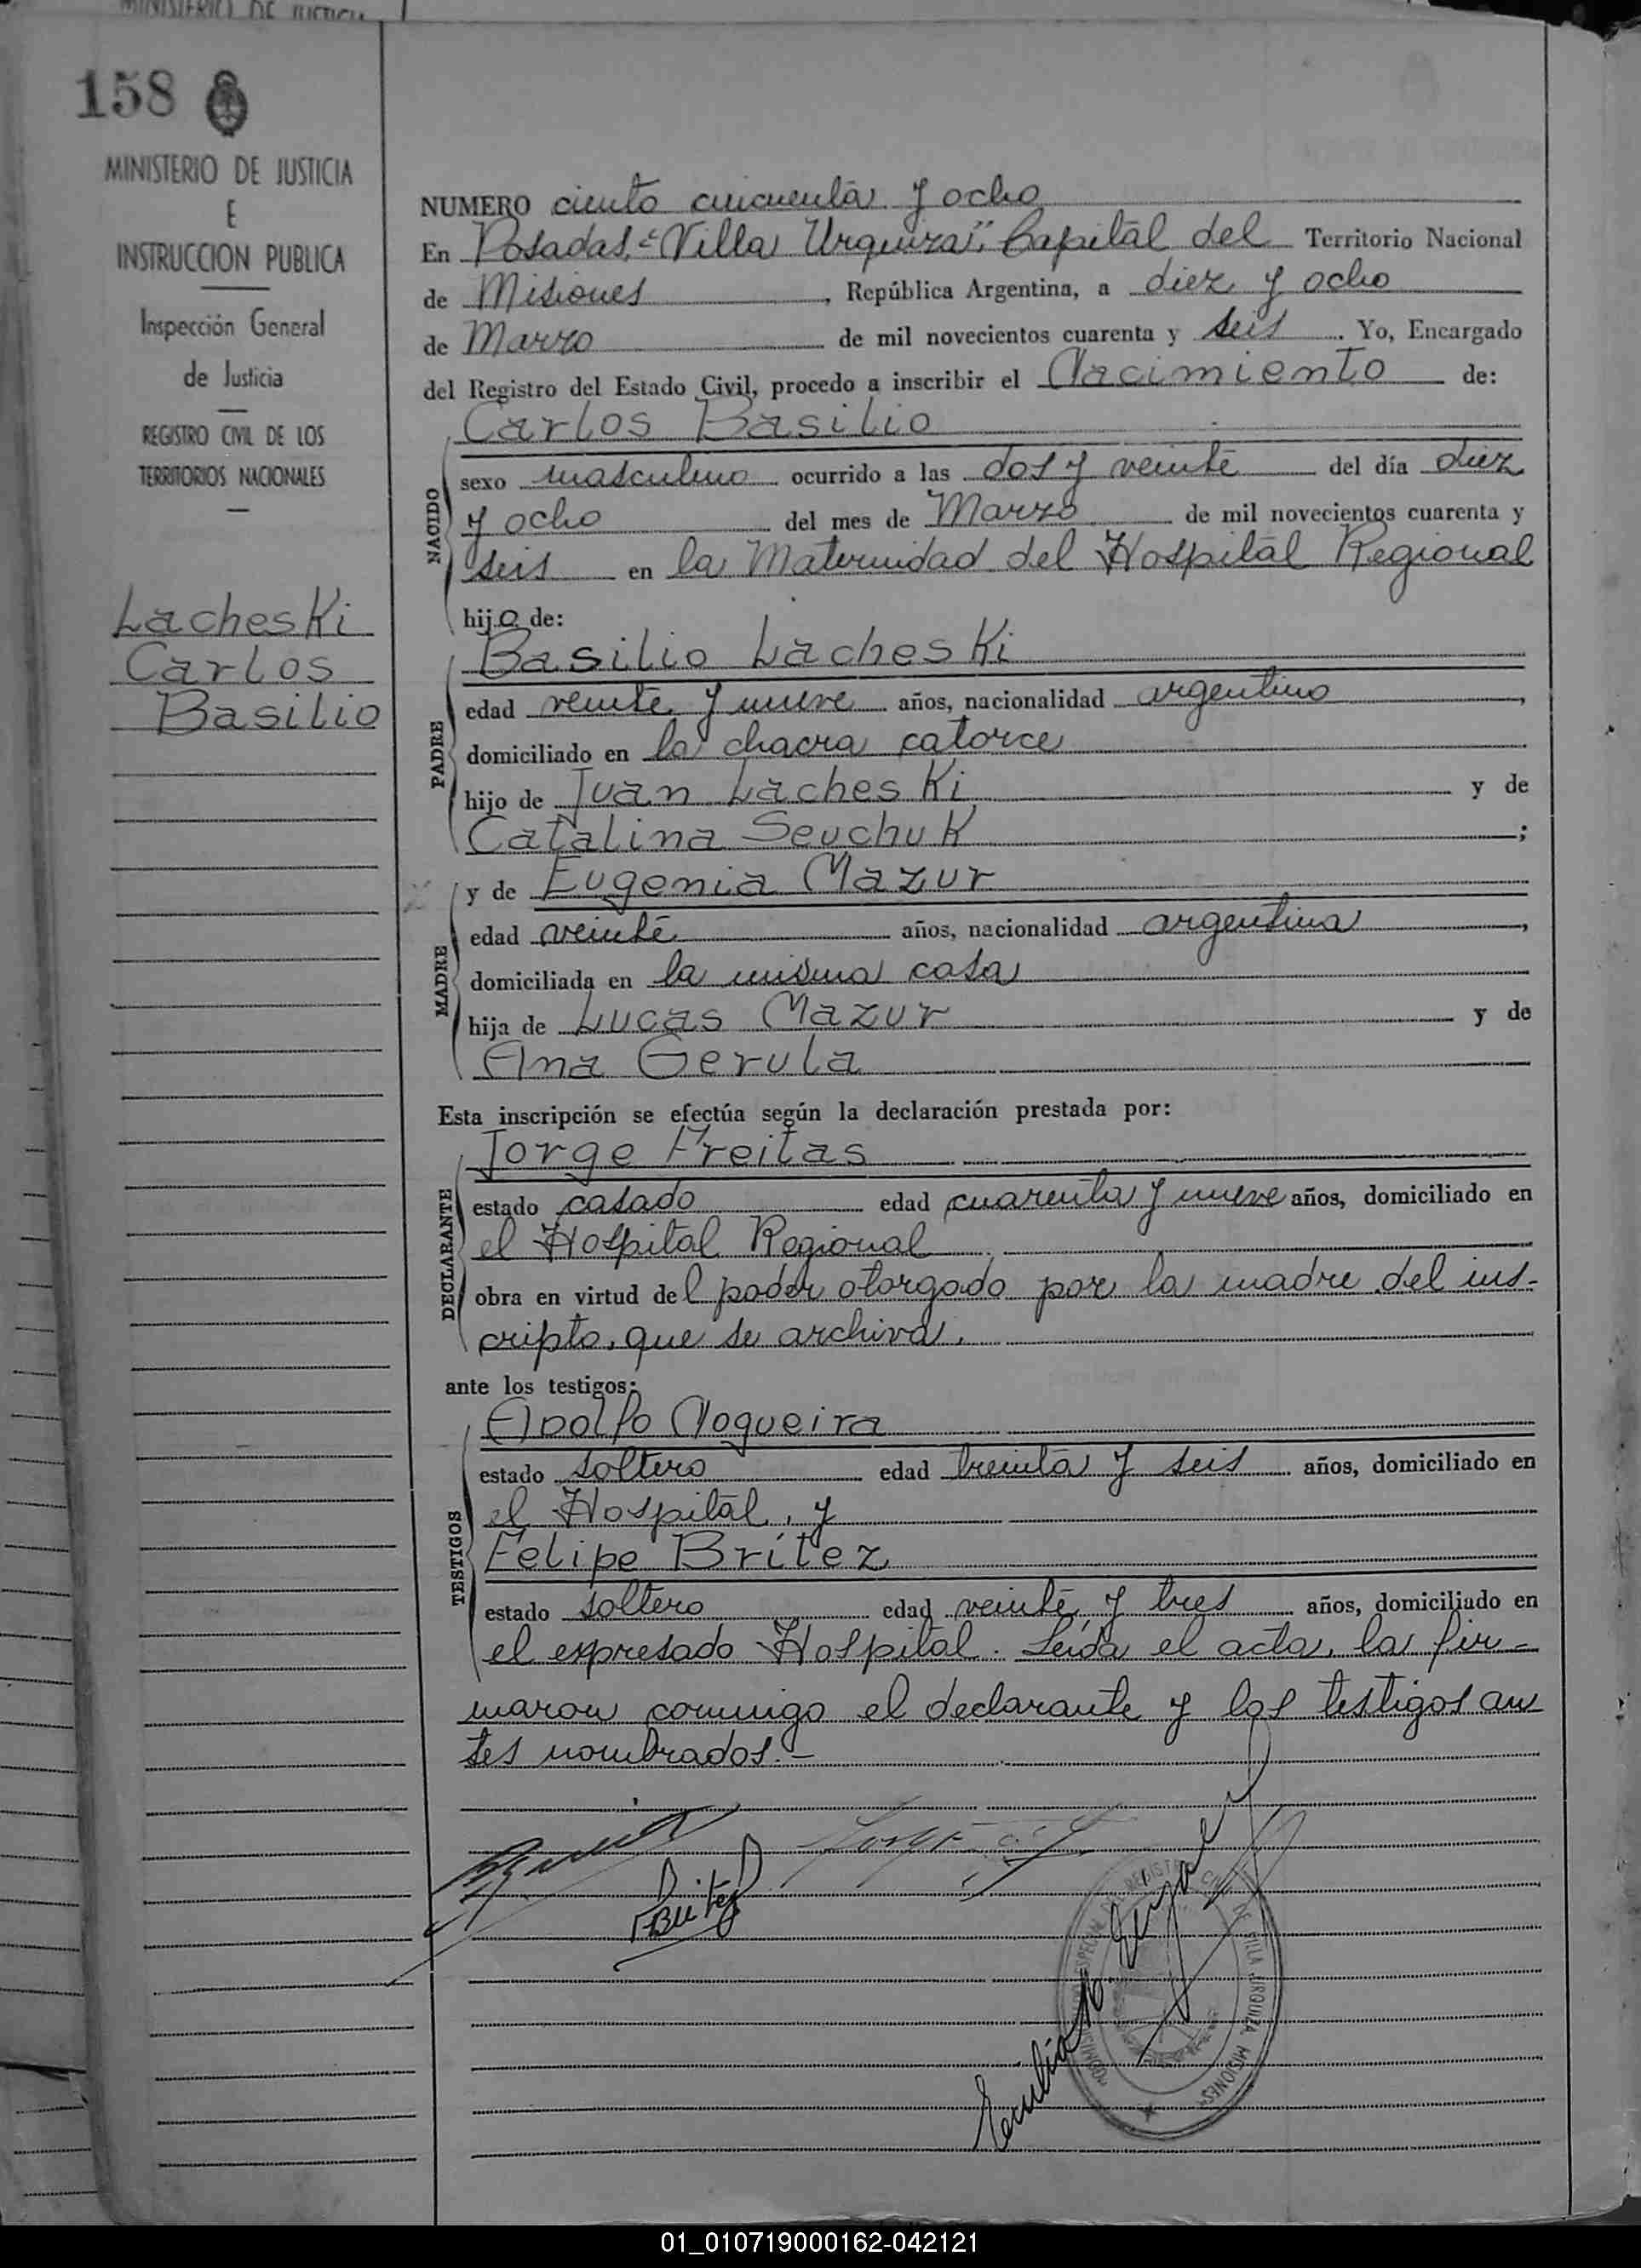 MINISTERIO DE JUSTICIA
158
MINISTERIO DE JUSTICIA
E
INSTRUCCION PUBLICA
Inspección General
de Justicia
REGISTRO CIVIL DE LOS
TERRITORIOS NACIONALES
Lacheski
Carlos
Basilio
NUMERO ciento cincuenta y ocho
En Posadas, "Villa Urquiza", Capital del Territorio Nacional
de Misiones, República Argentina, a diez y ocho
de Marzo de mil novecientos cuarenta y seis. Yo, Encargado
del Registro del Estado Civil, procedo a inscribir el Nacimiento de:
NACIDO
Carlos Basilio
sexo masculino ocurrido a las dos y veinte del día diez
y ocho del mes de Marzo de mil novecientos cuarenta y
seis en la Maternidad del Hospital Regional
hijo de:
PADRE
Basilio Lacheski
edad veinte y nueve años, nacionalidad argentino,
domiciliado en la chacra catorce
hijo de Juan Lacheski y de
Catalina Seuchuk;
MADRE
y de Eugenia Mazur
edad veinte años, nacionalidad argentina,
domiciliada en la misma casa
hija de Lucas Mazur y de
Ana Gerula
Esta inscripción se efectúa según la declaración prestada por:
DECLARANTE
Jorge Freitas
estado casado edad cuarenta y nueve años, domiciliado en
el Hospital Regional
obra en virtud del poder otorgado por la madre del ins-
cripto, que se archiva.
ante los testigos:
TESTIGOS
Adolfo Nogueira
estado soltero edad treinta y seis años, domiciliado en
el Hospital, y
Felipe Brítez
estado soltero edad veinte y tres años, domiciliado en
el expresado Hospital. Leída el acta, la fir-
maron conmigo el declarante y los testigos an
tes nombrados.-
Britez
REGISTRO CIVIL DE VILLA URQUIZA MISIONES
01_010719000162-042121